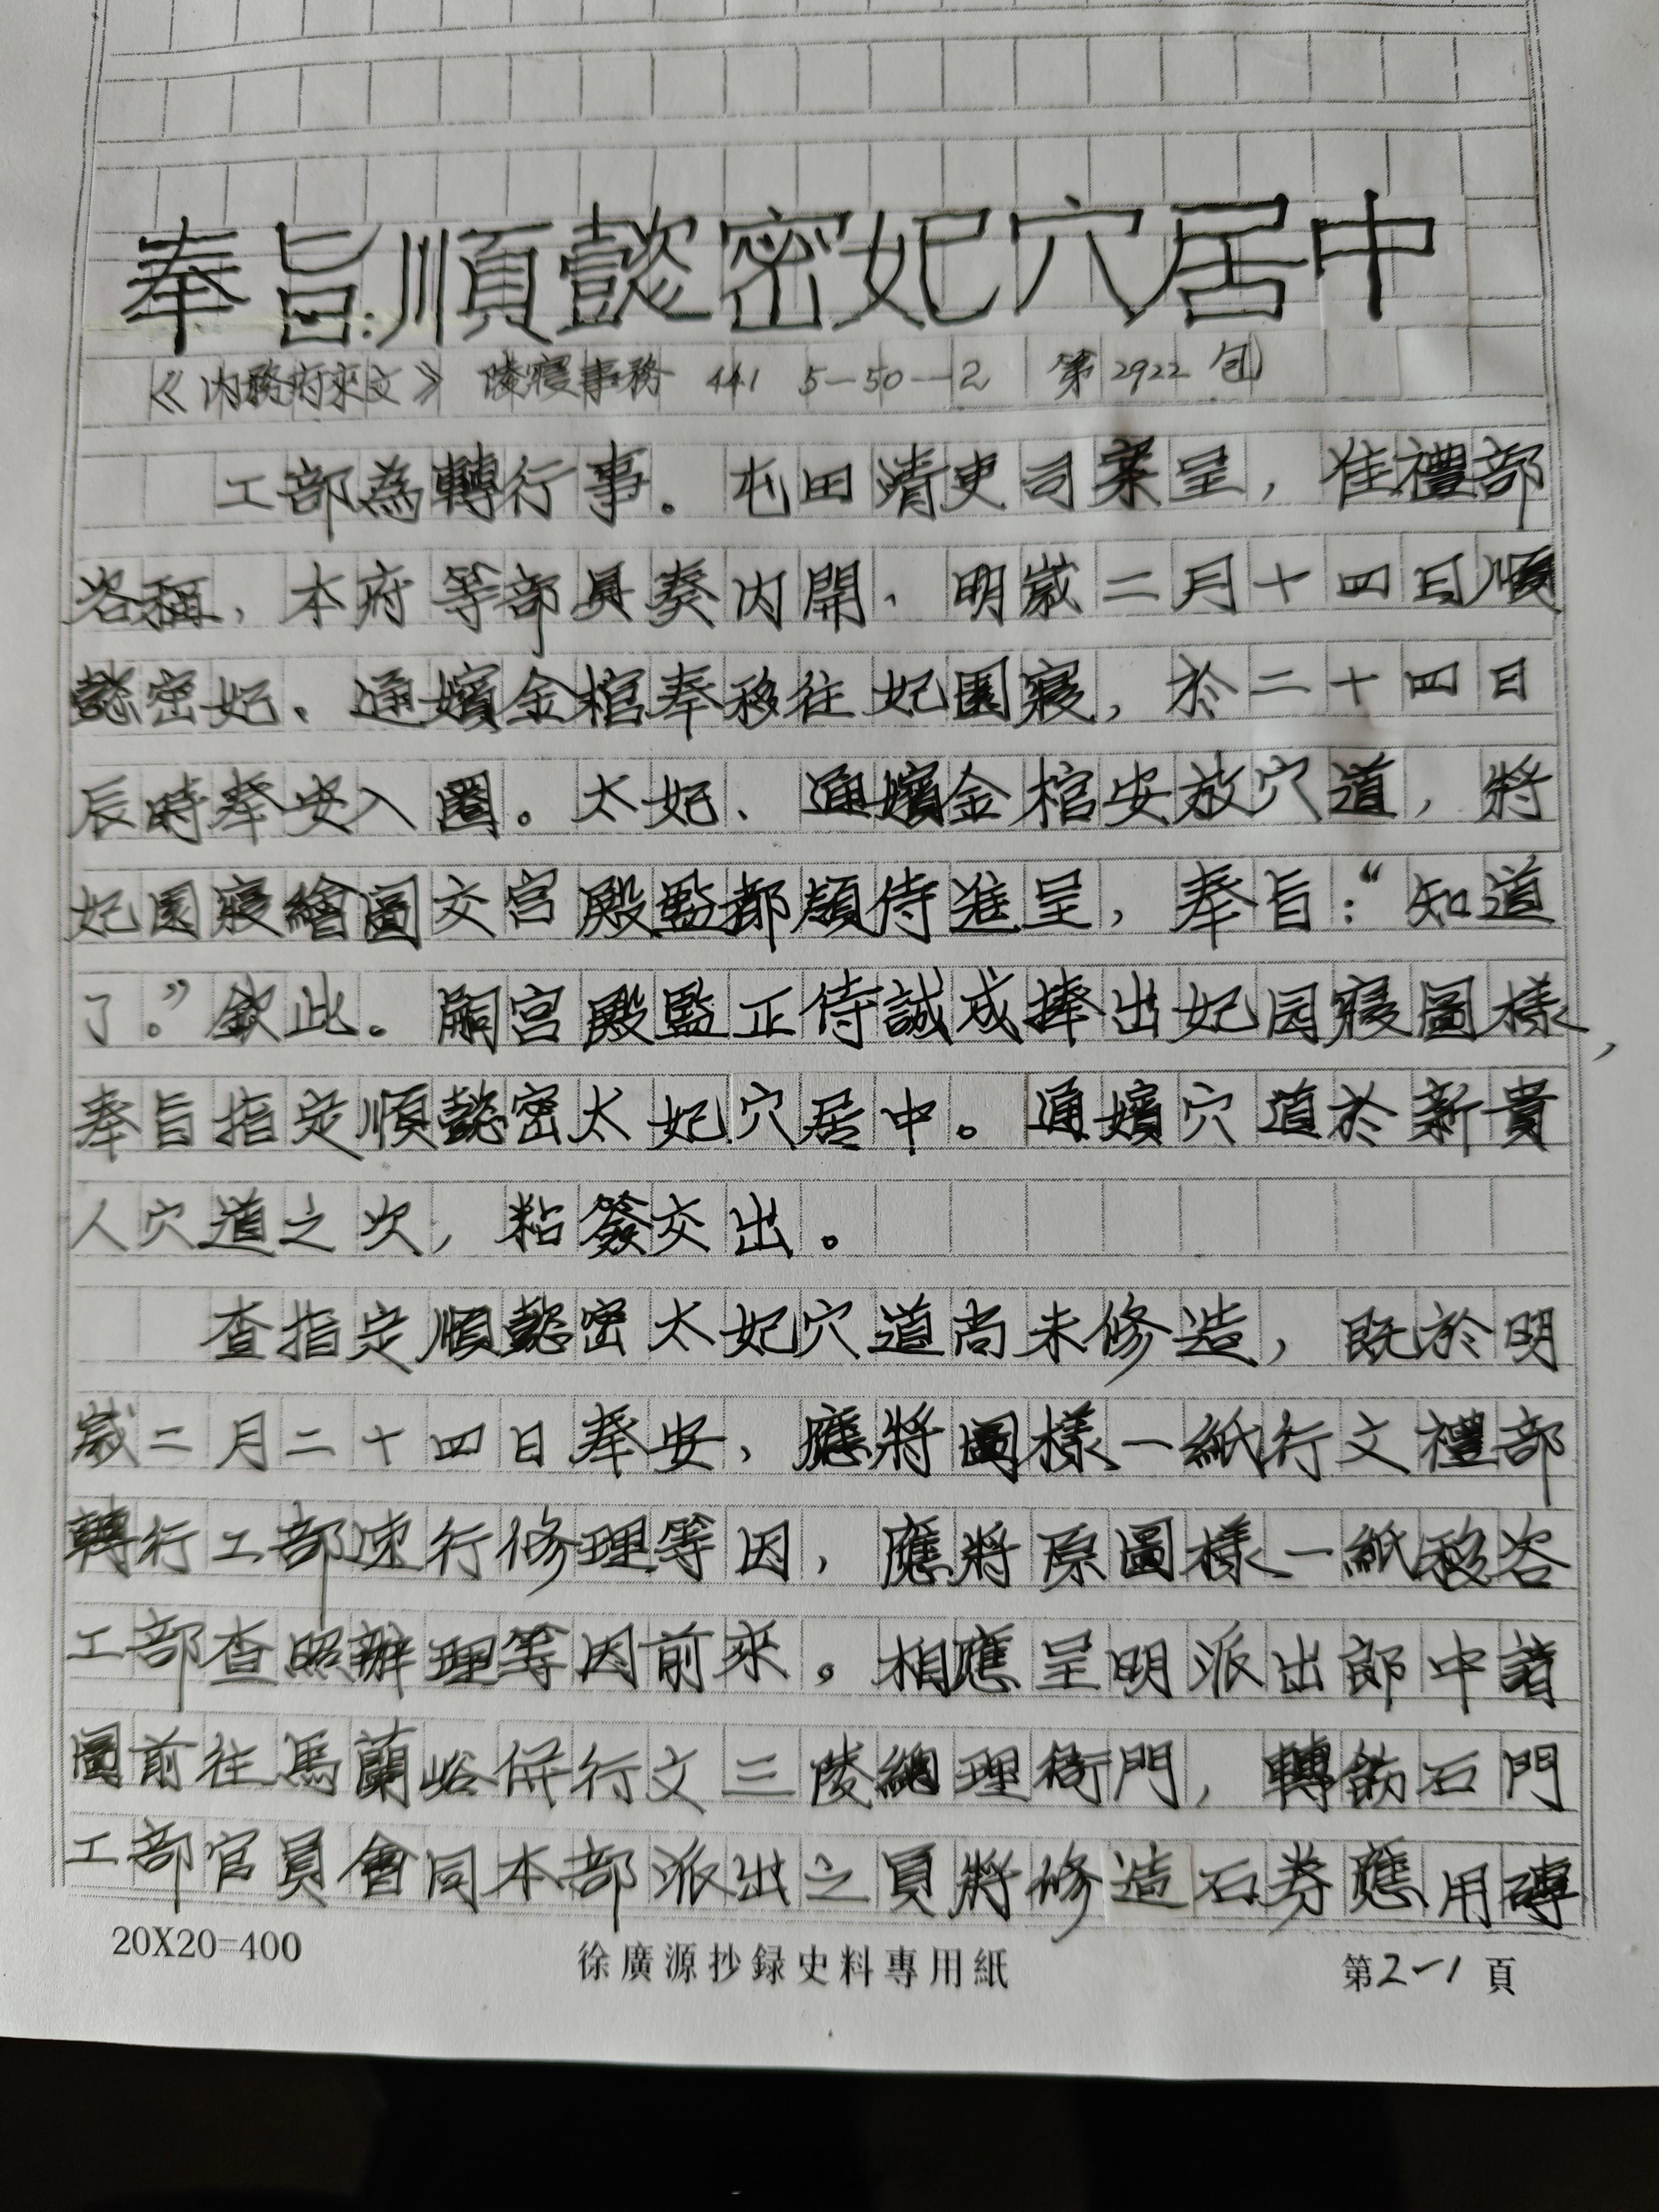 奉旨:順懿密妃穴居中
《内務府來文》 陵寢事務 441 5—50—2 第2922包
工部為轉行事。屯田清吏司案呈,准禮部
咨稱,本府等部具奏内開、明歲二月十四日順
懿密妃、通嬪金棺奉移往妃園寢,於二十四日
辰時奉安入園。太妃、通嬪金棺安放穴道,將
妃園寢繪圖交宮殿監都領侍進呈,奉旨:“知道
了。”欽此。嗣宮殿監正侍誠成捧出妃园寢圖樣,
奉旨指定順懿密太妃穴居中。通嬪穴道於新貴
人穴道之次,粘簽交出。
查指定順懿密太妃穴道尚未修造,既於明
歲二月二十四日奉安,應將圖樣一紙行文禮部
轉行工部速行修理等因,應將原圖樣一紙移咨
工部查照辦理等因前來。相應呈明派出郎中諸
圖前往馬蘭峪併行文三陵總理衙門,轉飭石門
工部官員會同本部派出之員將修造石券應用磚
20X20=400 徐廣源抄録史料專用紙 第2-1頁